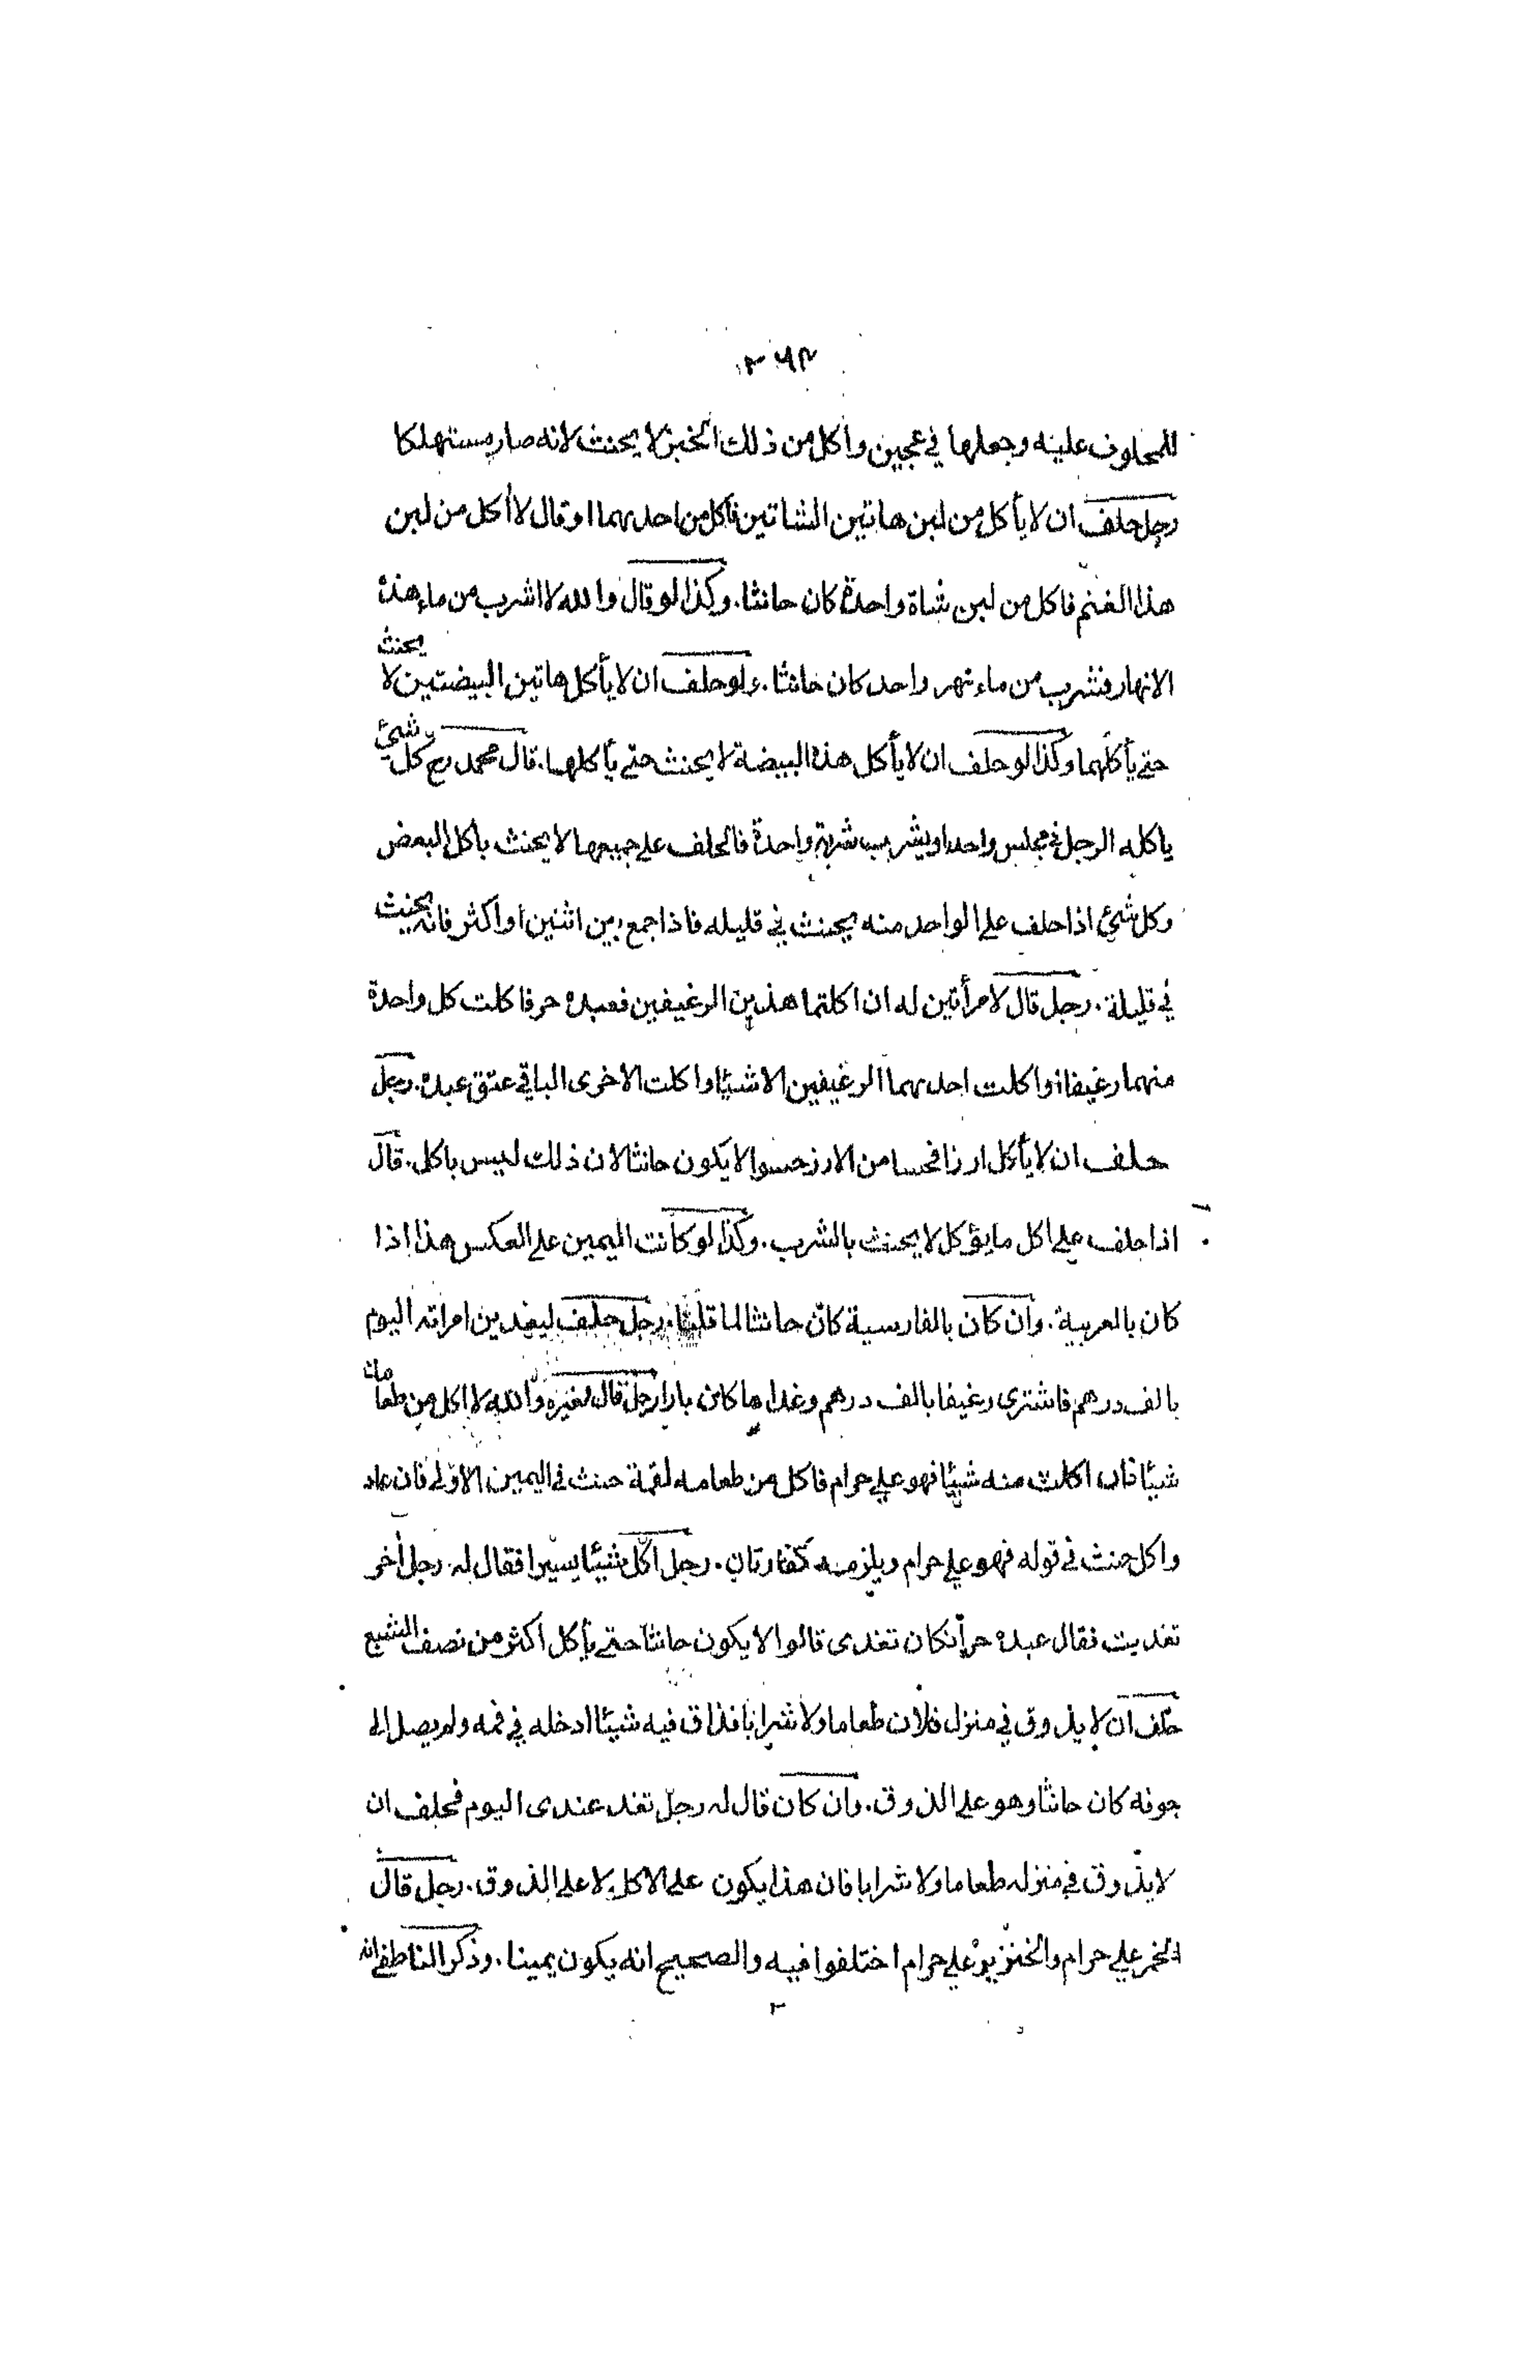 ٢٦٣
المحلوف عليه وجعلها في عجين واكل من ذلك الخبز لا يحنث لانه صار مستهلكا
رجل حلف ان لا يأكل من لبن هاتين الشاتين فأكل من احدىهما او قال لا أكل من لبن
هذا الغنم فاكل من لبن شاة واحدة كان حانثا. وكذا لو قال والله لا اشرب من ماء هذه
الانهار فشرب من ماء نهر واحد كان حانثا. ولو حلف ان لا يأكل هاتين البيضتين لا يحنث
حتى يأكلهما وكذا لو حلف ان لا يأكل هذه البيضة لا يحنث حتى يأكلها. قال محمد رح كل شيئ
ياكله الرجل في مجلس واحد او يشرب شربة واحدة فالحلف على جميعها لا يحنث باكل البعض
وكل شيئ اذا حلف على الواحد منه يحنث في قليله فاذا جمع بين اثنين او اكثر فانه يحنث
في قليلة. رجل قال لامرأتين له ان اكلتما هذين الرغيفين فعبده حر فاكلت كل واحدة
منهما رغيفا او اكلت احدىهما الرغيفين الا شيئا واكلت الاخرى الباقي عتق عبده. رجل
حلف ان لا يأكل ارزا فحسا من الارز حسوا لا يكون حانثا لان ذلك ليس باكل. قال
اذا حلف على اكل ما يؤكل لا يحنث بالشرب. وكذا لو كانت اليمين على العكس هذا اذا
كان بالعربية. وان كان بالفارسية كان حانثا لما قلنا. رجل حلف ليغدين امراته اليوم
بالف درهم فاشترى رغيفا بالف درهم وغداها كان بارا رجل قال لغيره والله لا اكل من طعامك
شيئا فان اكلت منه شيئا فهو علي حرام فاكل من طعامه لقمة حنث في اليمين الاولى فان عاد
واكل حنث في قوله فهو علي حرام ويلزمه كفارتان. رجل اكل شيئا يسيرا فقال له رجل أخر
تغديت فقال عبده حر أنكان تغدى قالوا لا يكون حانثا حتى يأكل اكثر من نصف الشبع
حلف ان لا يذوق في منزل فلان طعاما ولا شرابا فذاق فيه شيئا ادخله في فمه ولم يصل الى
جوفه كان حانثا وهو على الذوق. وان كان قال له رجل تغد عندى اليوم فحلف ان
لا يذوق في منزله طعاما ولا شرابا فان هذا يكون على الاكل لا على الذوق. رجل قال
الخمر علي حرام والخنزير علي حرام اختلفوا فيه والصحيح انه يكون يمينا. وذكر الناطفي انه